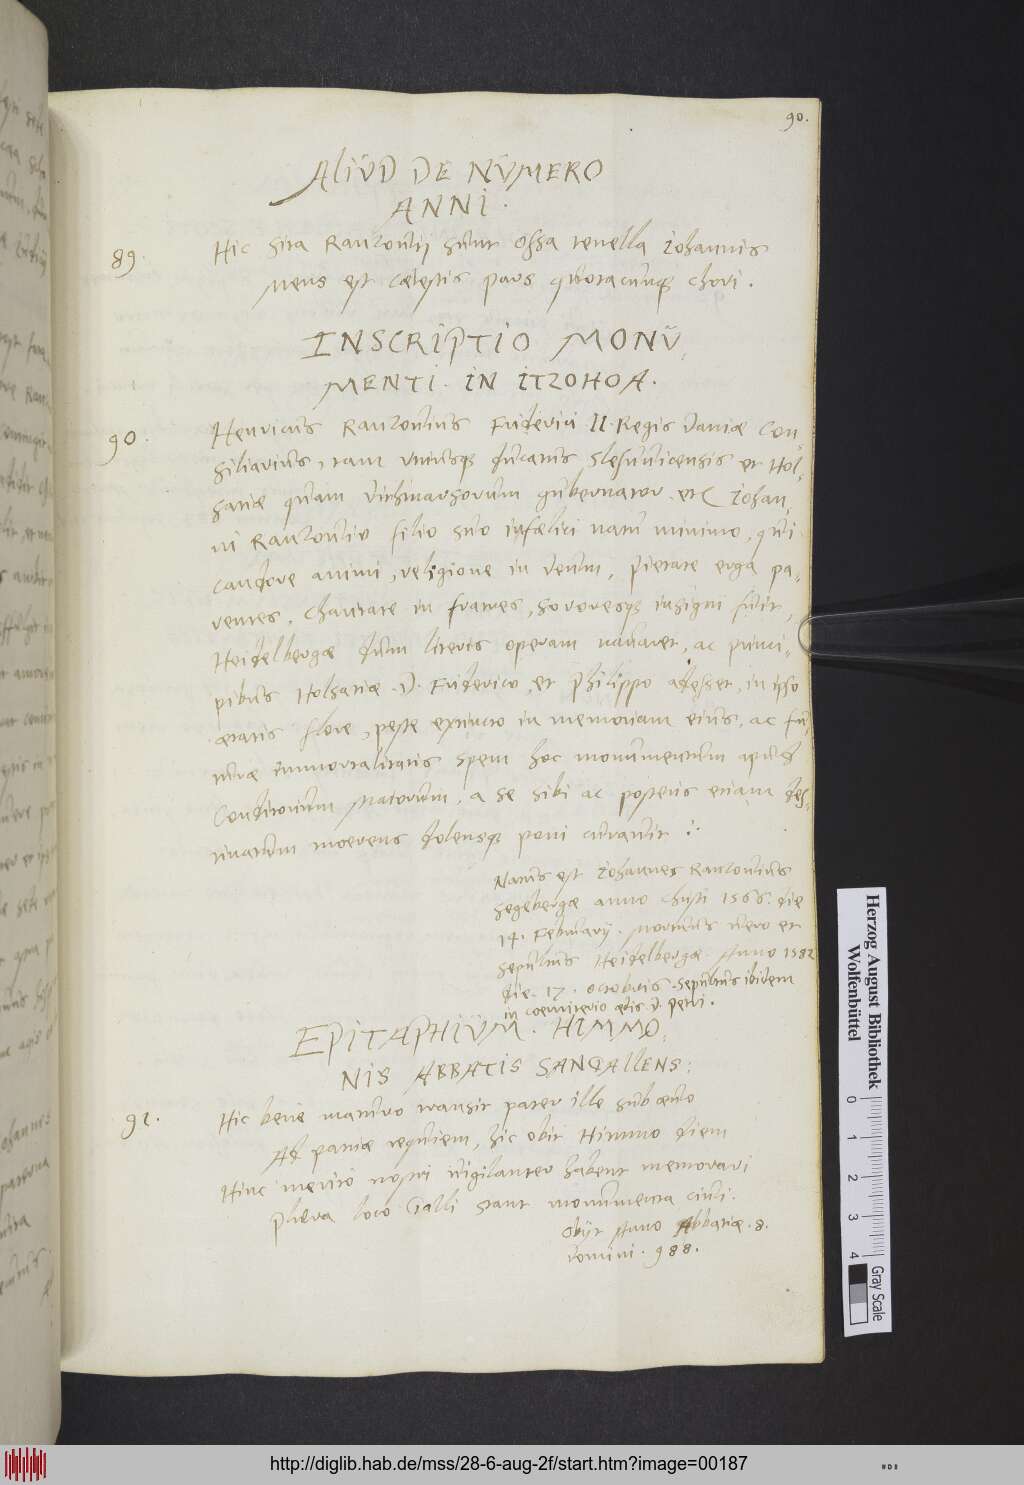 90.
ALIUD DE NUMERO
ANNI.
89. Hic sita Ranzonij sunt ossa tenella Iohannis
Mens est caelestis pars quotacunque chori.
INSCRIPTIO MONU,
MENTI. IN ITZOHOA.
90. Henricus Ranzonius Friderici II. Regis Daniæ Con,
siliarius, tam utriusque ducatus Slesuuicensis et Hol,
satiæ quam Dithmarsorum gubernator. etc Iohan,
ni Ranzonio filio suo infælici natu minimo, qui
candore animi, religione in deum, pietate erga pa,
rentes, charitate in fratres, sororesque insigni fuit,
Heidelbergæ dum literis operam navaret, ac princi,
pibus Holsatiæ. D. Friderico, et Philippo adesset, in ipso
ætatis flore, peste extincto in memoriam eius, ac fu,
turæ immortalitatis spem hoc monumentum apud
Conditorium Maiorum, a se sibi ac posteris etiam des,
tinatum moerens dolensque poni curavit
Natus est Iohannes Ranzonius
Segebergæ anno Christi 1566. die
14. Februarij. Mortuus vero et
sepultus Heidelbergæ. Anno 1582
die. 17. octobris. sepultus ibidem
in coemiterio ædis D. Petri.
EPITAPHIUM. HIMMO,
NIS ABBATIS SANGALLENS:
91. Hic bene maturo transit pater ille sub ævo
Ad patriæ requiem, hic obit Himmo diem
Hinc merito nostri vigilanter habent memorari
Plura loco Galli stant monumenta
Obijt Anno Abbatiæ. 8.
domini. 988.
Herzog August Bibliothek
Wolfenbüttel
0 1 2 3 4
Gray Scale
http://diglib.hab.de/mss/28-6-aug-2f/start.htm?image=00187